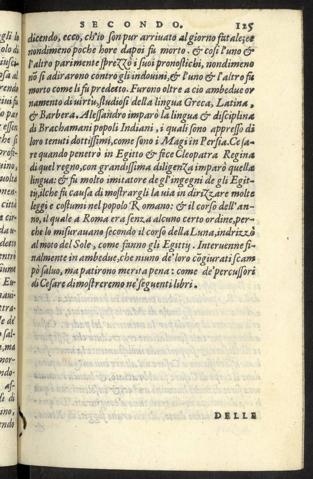 SECONDO. 125
dicendo, ecco, ch'io son pur arrivato al giorno fatale: e e
nondimeno poche hore dapoi fu morto. & cosi l'uno &
l'altro parimente sprezzò i suoi pronostichi, nondimeno
nō si adirarono contro gli indouini, & l'uno & l'altro fu
morto come li fu predetto. Furono oltre a cio ambedue or
namento di uirtu, studiosi della lingua Greca, Latina,
& Barbera. Alessandro imparò la lingua & disciplina
di Brachamani popoli Indiani, i quali sono appresso di
loro tenuti dottissimi, come sono i Magi in Persia. Cesa-
re quando penetrò in Egitto & fice Cleopatra Regina
di quel regno, con grandissima diligenza imparò quella
lingua: & fu molto imitatore de gl'ingegni de gli Egit-
tij, il che fu causa di mostrargli la uia in dirizzare molte
leggi e costumi nel popolo Romano: & il corso dell'an-
no, il quale a Roma era senza alcuno certo ordine, per-
che lo misurauano secondo il corso della Luna, indrizzò
al moto del Sole, come fanno gli Egittij. Interuenne fi-
nalmente in ambedue, che niuno de' loro cōgiurati scam
pò saluo, ma patirono merita pena: come de' percussori
di Cesare dimostreremo ne' seguenti libri.
DELLE